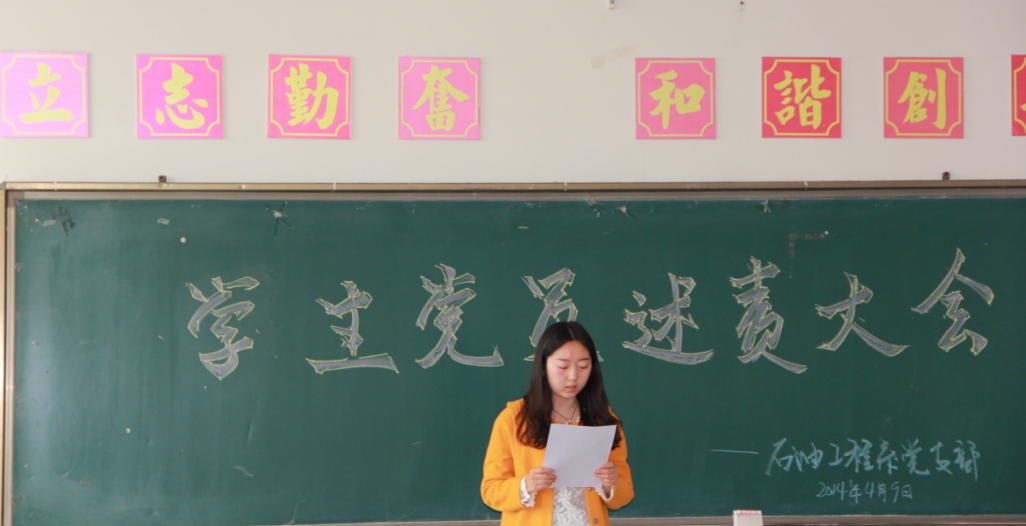 立志勤奮 和諧創
学生党员述责大会
——石油工程系党支部
2014年4月9日